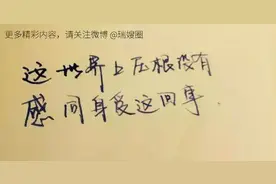 更多精彩内容，请关注微博 @瑞嫂圈
这世界上压根没有
感同身受这回事.